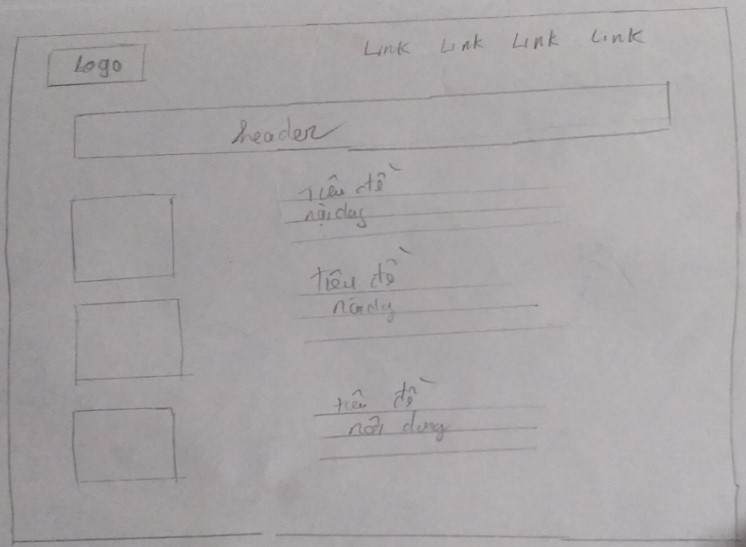 Logo
Link Link Link Link
header
tiêu đề
nội dung
tiêu đề
nội dung
tiêu đề
nội dung